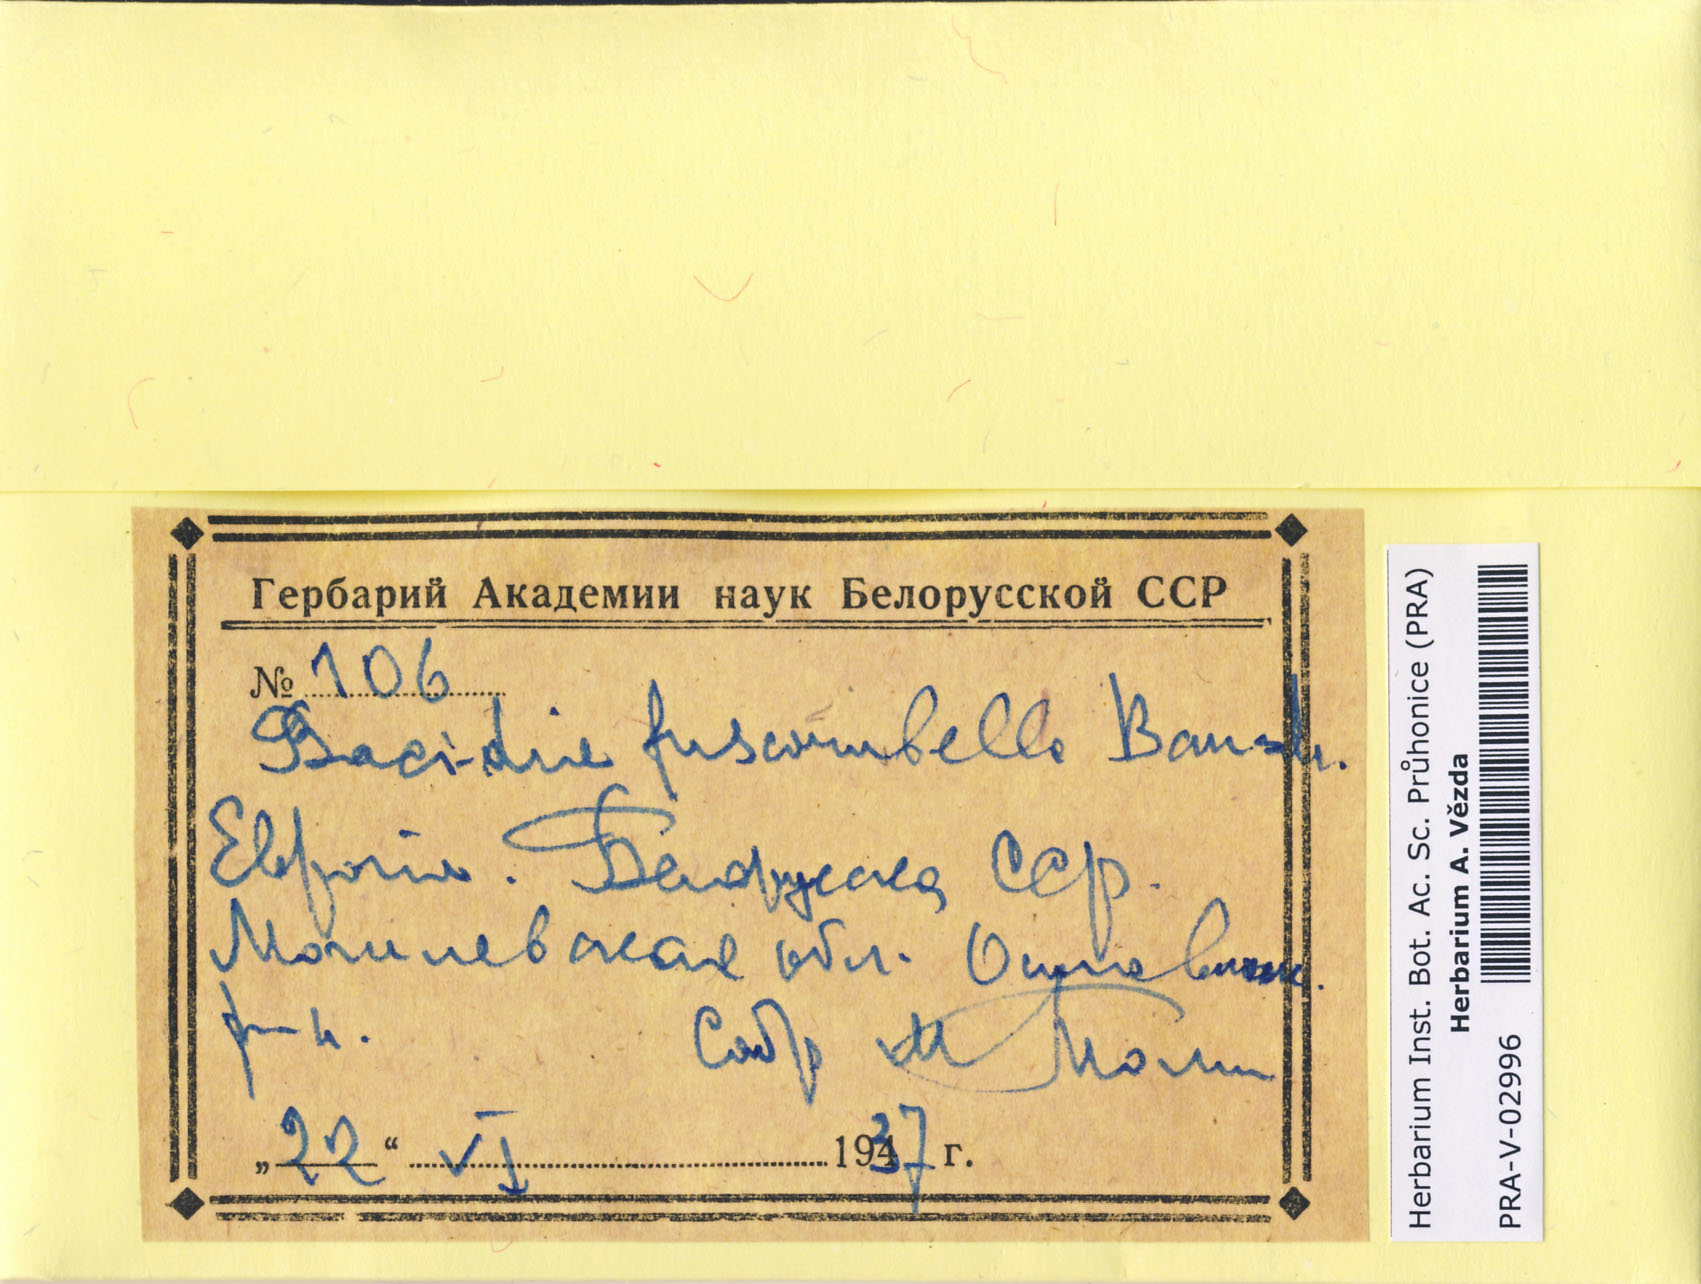 Гербарий Академии наук Белорусской ССР
№ 106
Bacidia fuscorubella Bausch.
Европа. Белорусская ССР.
Могилевская обл. Осиповичск.
р-н. Собр М Томин
„22“ VI 1937 г.
Herbarium Inst. Bot. Ac. Sc. Průhonice (PRA)
Herbarium A. Vězda
PRA-V-02996